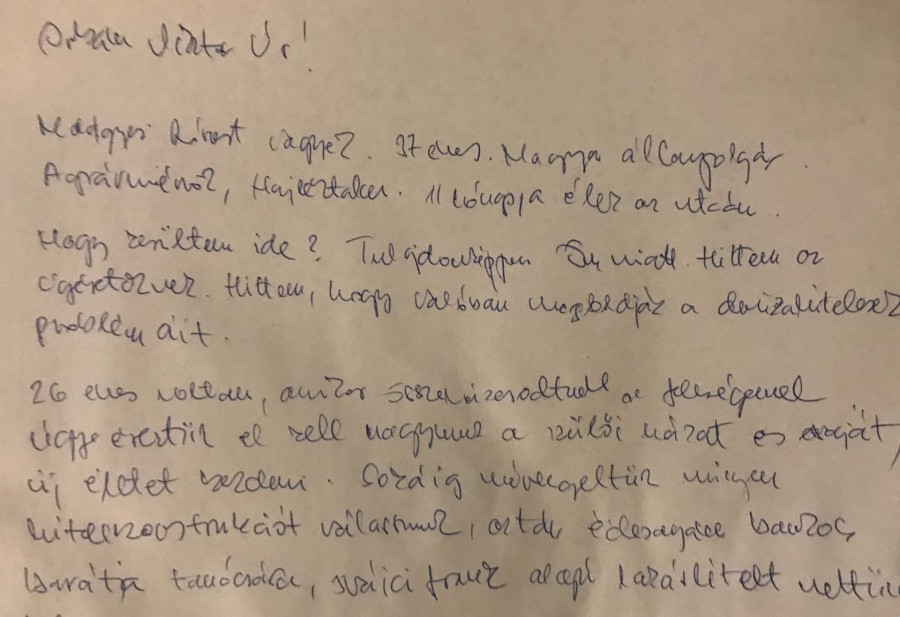 Orbán Viktor Úr!
vagyok. 37 éves. Magyar állampolgár.
Agrármérnök, Hajléktalan. 11 hónapja élek az utcán.
Hogy kerültem ide? Tulajdonképpen Ön miatt. Hittem az
ígéretüknek. Hittem, hogy valóban megoldják a devizahitelesek
problémáit.
26 éves voltam, amikor összeházasodtunk a feleségemmel
Úgy éreztük el kell hagynunk a szülői házat és
új életet kezdeni. Sokáig milyen
hitelkonstrukciót válasszunk, aztán édesapám bankos
barátja tanácsára, svájci frank alapú lakáshitelt vettünk